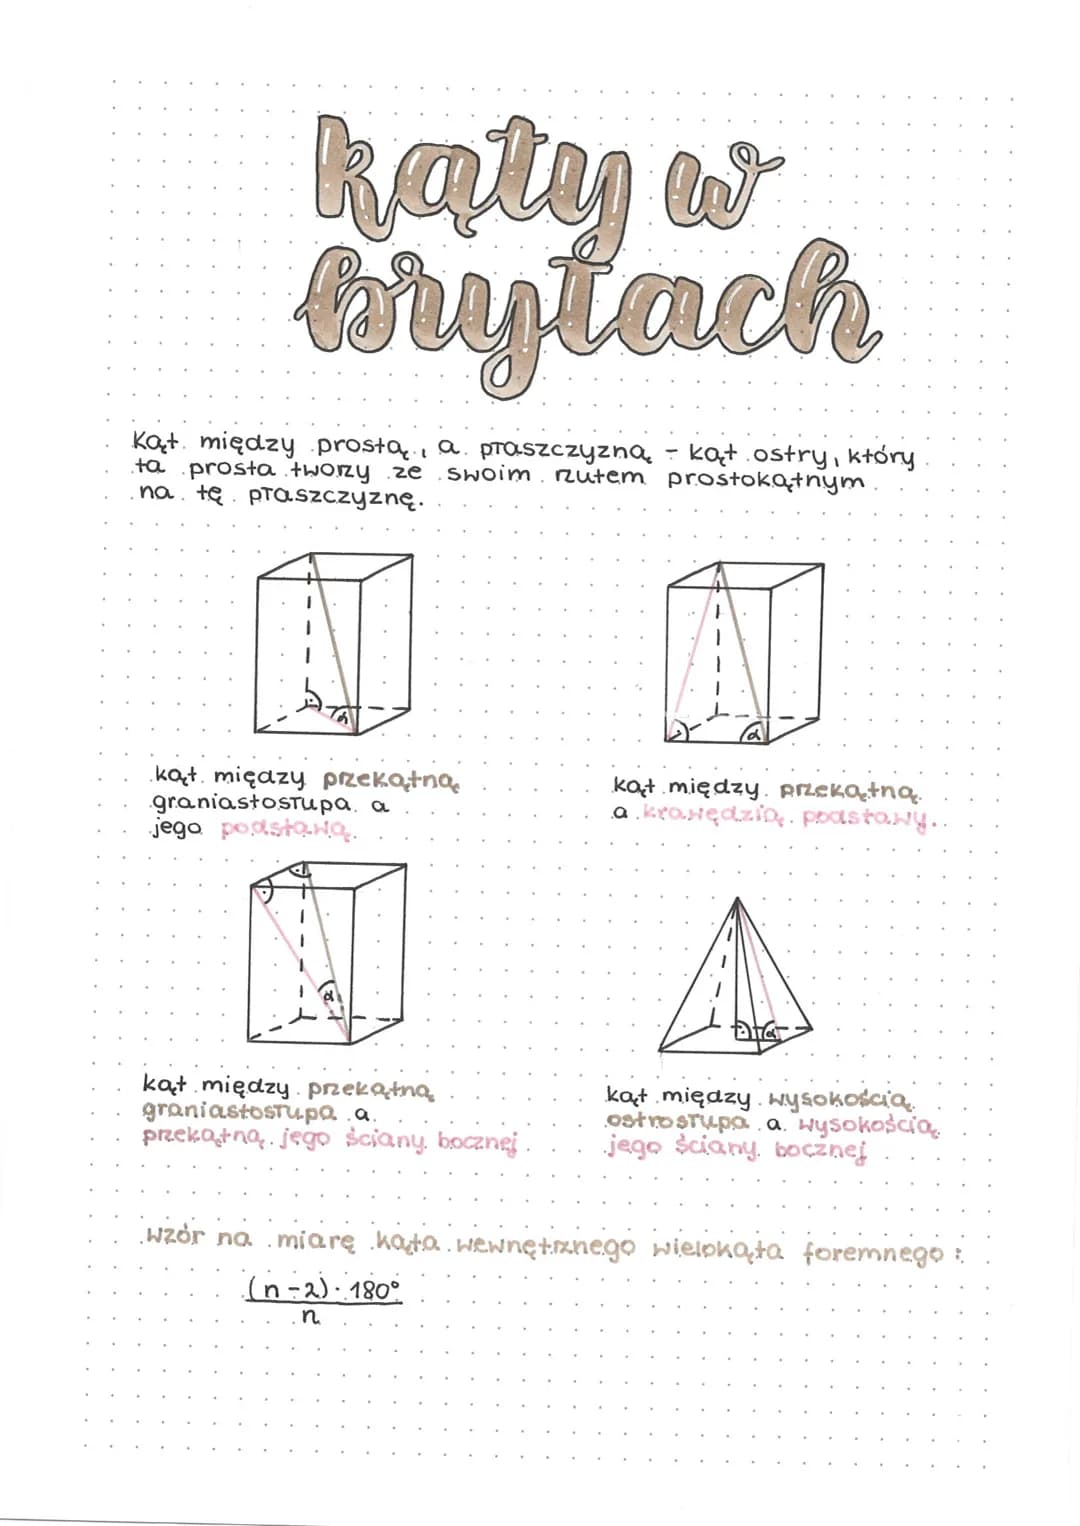 kąty w
bryłach
Kąt między prostą, a płaszczyzną - kąt ostry, który
ta prosta tworzy ze swoim rzutem prostokątnym
na tę płaszczyznę.
α
α
kąt między przekątną
graniastosłupa a
jego podstawą.
kąt między przekątną
a krawędzią podstawy.
α
α
kąt między przekątną
graniastosłupa a
przekątną jego ściany bocznej
kąt między wysokością
ostrosłupa a wysokością
jego ściany bocznej
wzór na miarę kąta wewnętrznego wielokąta foremnego:
(n-2)·180°
n